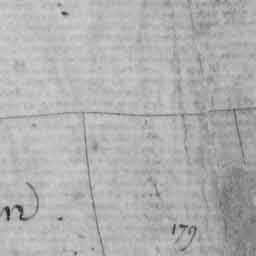 n .
179